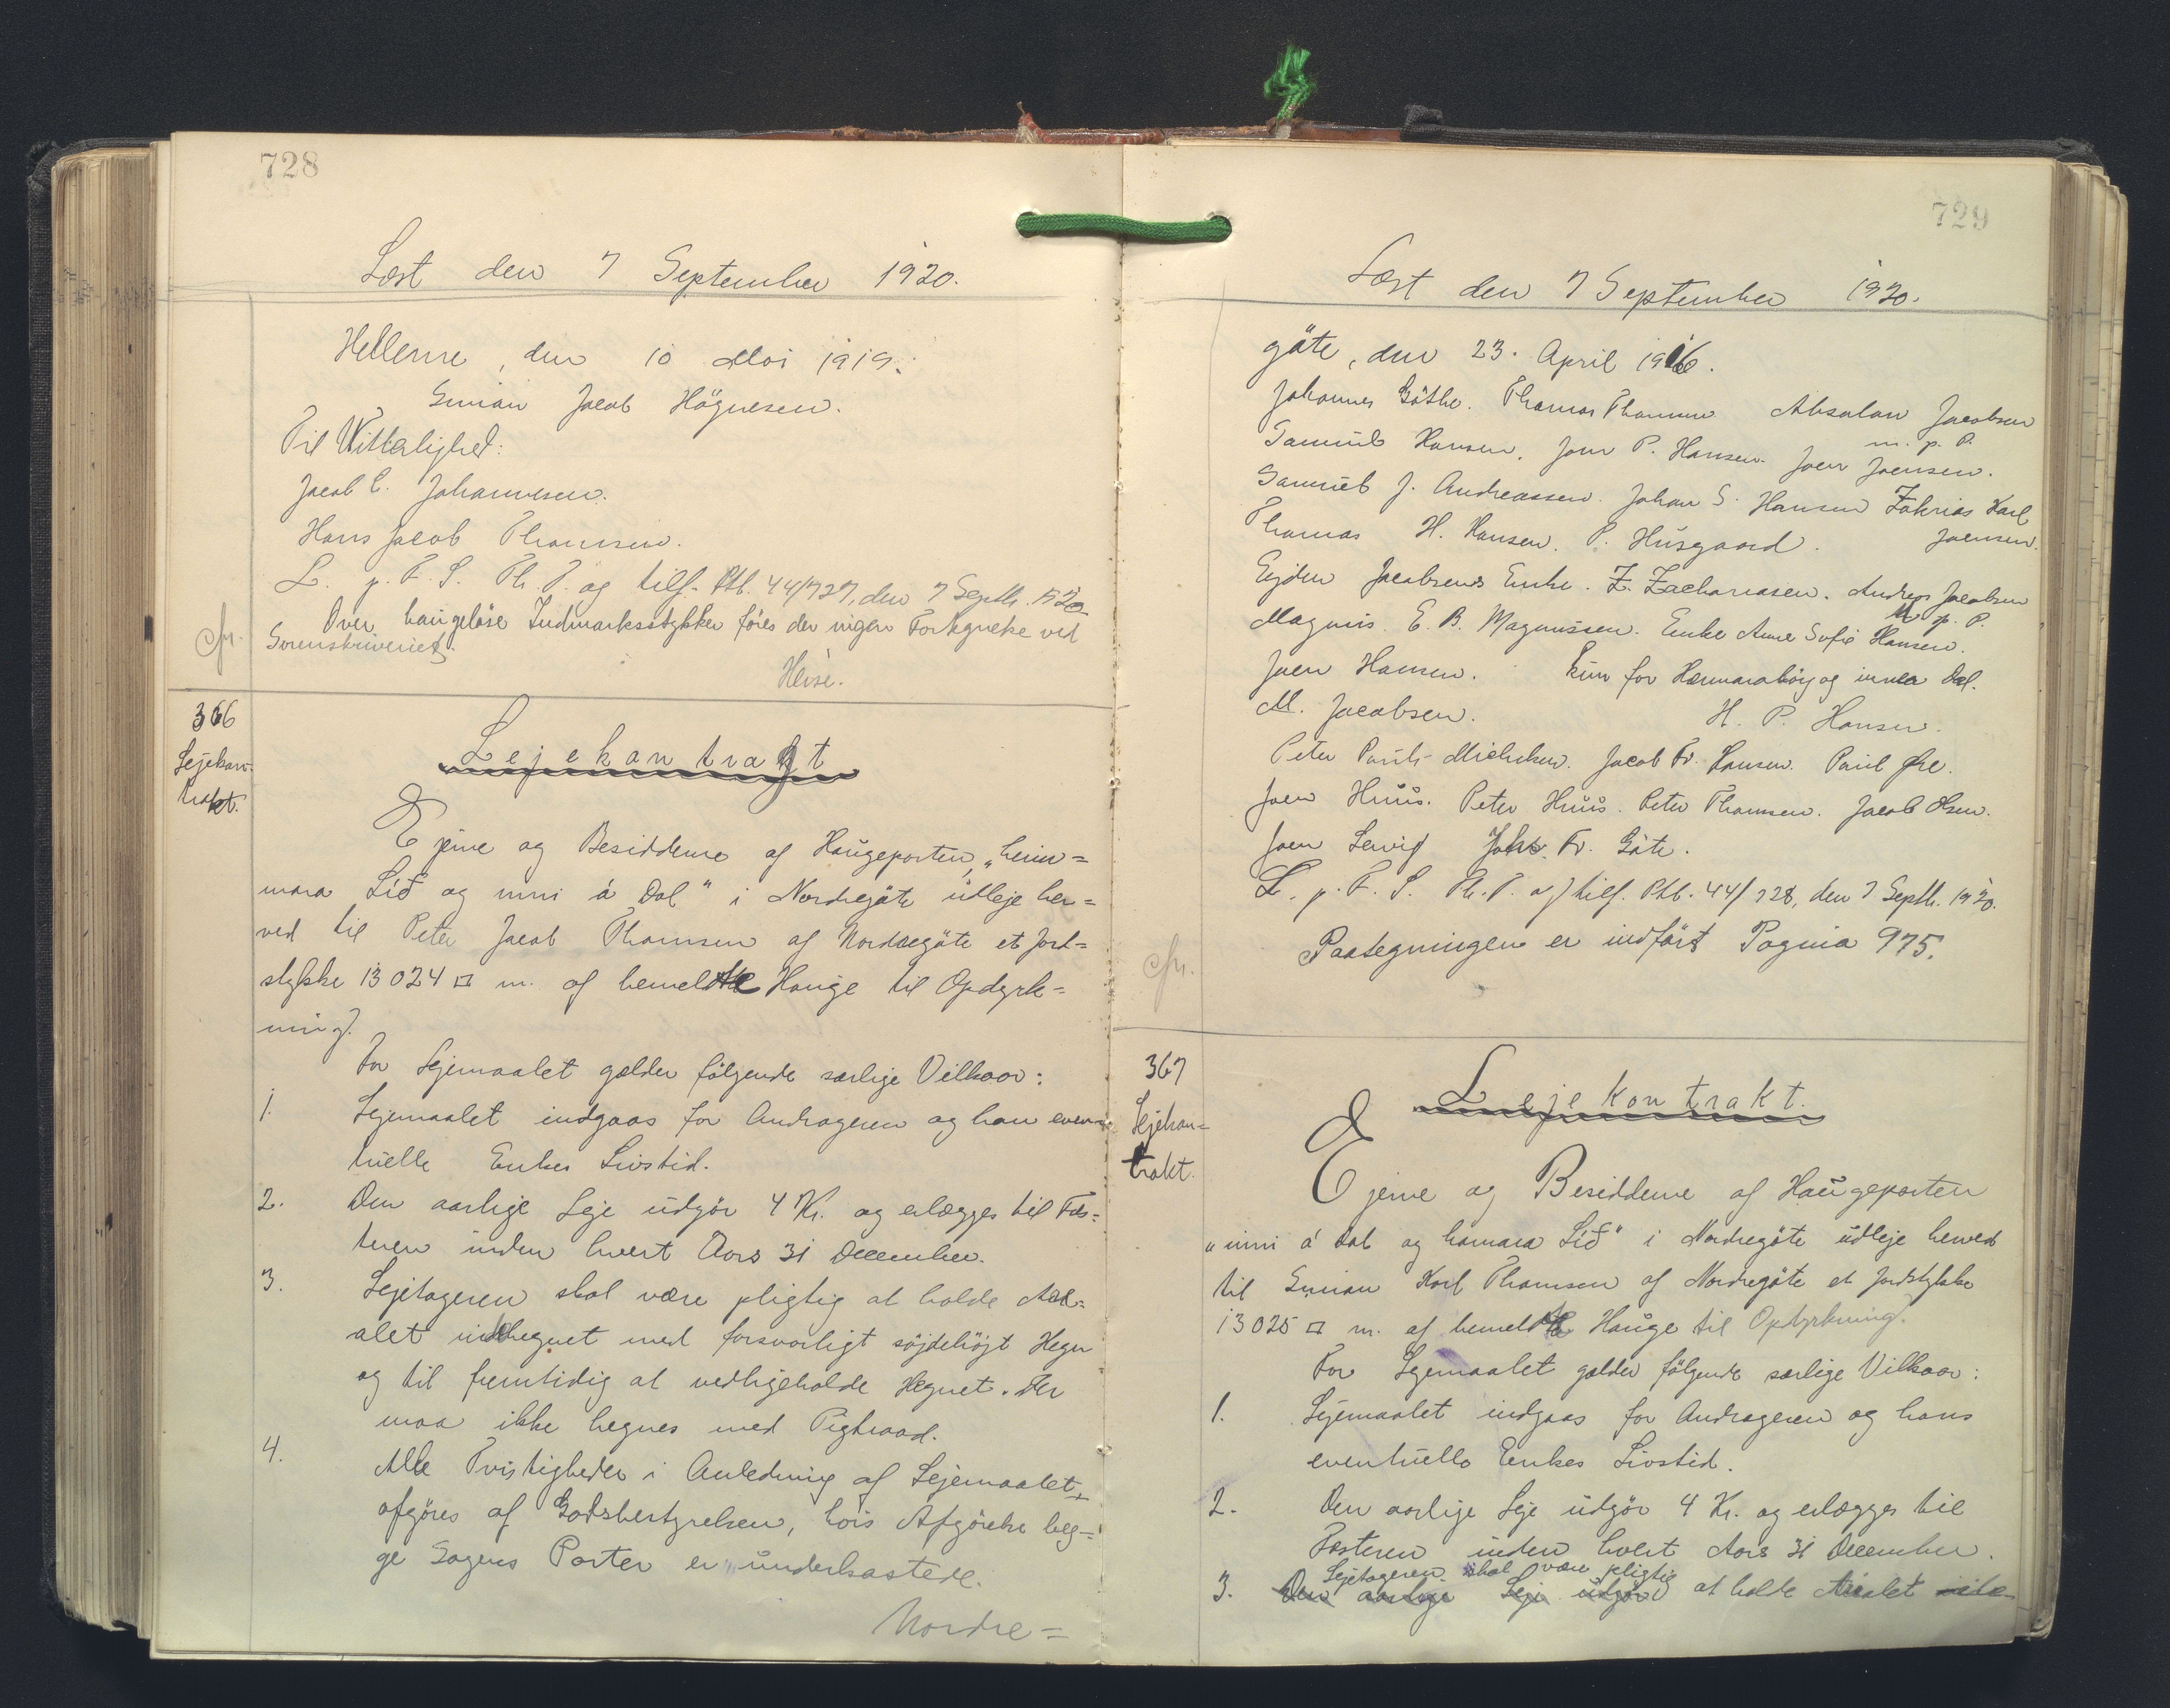 728
Læst den 7 September 1920.
Hellerne, den 10 Mai 1919.
Simian Jacob Högnesen.
Til Vitterlighed:
Jacob C. Johannesen.
Hans Jacob Thomsen.
L. p. F. S. Th. T. og tilf. Ptb. 44/727, den 7 Septb. 1920.
Over haugelöse Indmarksstykker föres der ingen Fortegnelse ved
cfr. Sorenskriveriet.
Heise.
366
Lejekon-
trakt.
Lejekontrakt
Ejerne og Besidderne af Haugeparten „heim=
mara Líð og inni á Dal“ i Nordregöte udleje her=
ved til Peter Jacob Thomsen af Nordregöte et Jord=
stykke 13024 □ m. af bemeldte Hauge til Opdyrk=
ning.
For Lejemaalet gælder fölgende særlige Vilkaar:
1. Lejemaalet indgaas for Andrageren og han even=
tuelle Enkes Livstid.
2. Den aarlige Leje udgör 4 Kr. og erlægges til Fæs=
teren inden hvert Aars 31 December.
3. Lejetageren skal være pligtig at holde Are=
alet indhegnet med forsvarligt söjdehöjt Hegn
og til fremtidig at vedligeholde Hegnet. Der
maa ikke hegnes med Pigtraad.
4. Alle Tvistigheder i Anledning af Lejemaalet
afgöres af Godsbestyrelsen, hvis Afgörelse beg=
ge Sagens Parter er underkastede.
Nordre=
729
Læst den 7 September 1920.
göte, den 23. April 1916.
Johannes Göthe. Thomas Thomsen Absalon Jacobsen
m. p. P.
Samuel Hansen. Joen P. Hansen. Joen Joensen.
Samuel J. Andreassen. Johan S. Hansen Zakrias Karl
Joensen.
Thomas H. Hansen. P. Husgaard.
Ejden Jacobsens Enke. Z. Zachariasen. Andreas Jacobsen
M. p. P.
Magnus E. B. Magnussen. Enke Anne Sofie Hansen.
Joen Hansen. kun for Hammarabörg og innea Dal.
M. Jacobsen. H. P. Hansen.
Peter Pauli Michelsen. Jacob Fr. Hansen. Paul Øre.
Joen Huus. Peter Huus. Peter Thomsen. Jacob Olsen.
Joen Lervig Johs. Fr. Göte.
L. p. F. S. Th. T. og tilf. Ptb. 44/728, den 7 Septb. 1920.
cfr. Paategningen er indfört Pagina 975.
367
Lejekon=
trakt.
Lejekontrakt.
Ejerne og Besidderne af Haugeparten
„inni á Dal og hamara Líð“ i Nordregöte udleje herved
til Simian Karl Thomsen af Nordregöte et Jordstykke
13025 □ m. af bemeldte Hauge til Opdyrkning.
For Lejemaalet gælder fölgende særlige Vilkaar:
1. Lejemaalet indgaas for Andrageren og hans
eventuelle Enkes Livstid.
2. Den aarlige Leje udgör 4 Kr. og erlægges til
Fæsteren inden hvert Aars 31 December.
Lejetageren skal være pligtig
3. Den aarlige Leje udgör at holde Arealet